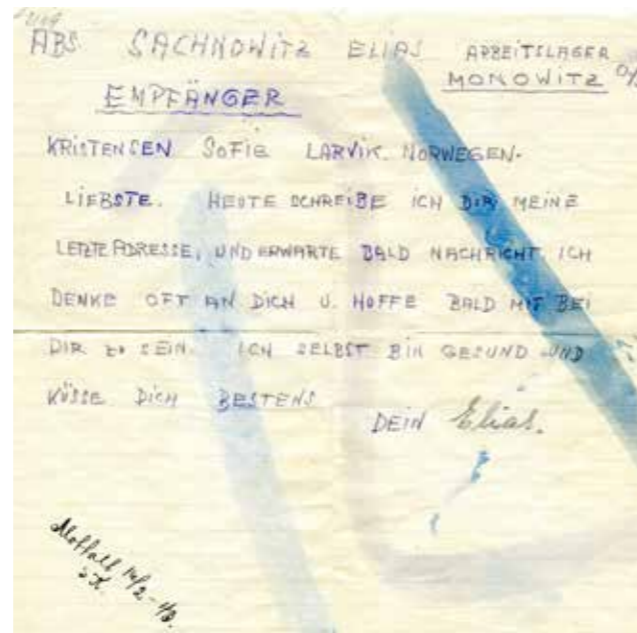 ABS SACHNOWITZ ELIAS ARBEITSLAGER
MONOWITZ O/S
EMPFÄNGER
KRISTENSEN SOFIE LARVIK. NORWEGEN-
LIEBSTE. HEUTE SCHREIBE ICH DIR MEINE
LETZTE ADRESSE, UND ERWARTE BALD NACHRICHT. ICH
DENKE OFT AN DICH U. HOFFE BALD MIT BEI
DIR ZU SEIN. ICH SELBST BIN GESUND UND
KÜSSE DICH BESTENS
DEIN Elias.